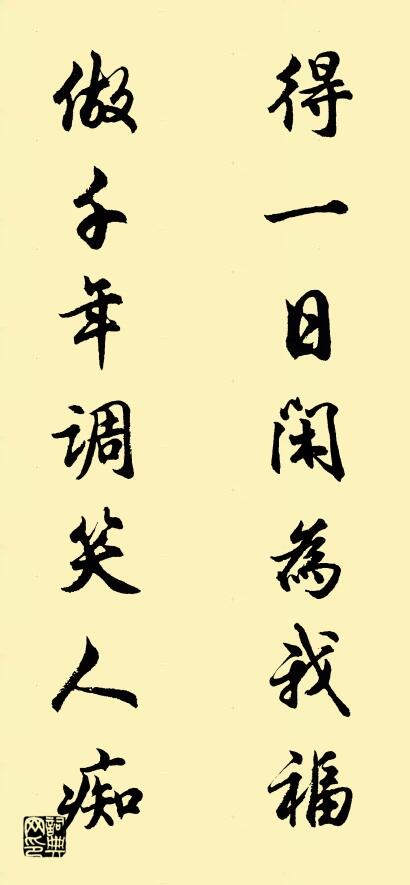 得一日閑為我福
做千年调笑人痴
詞典网印